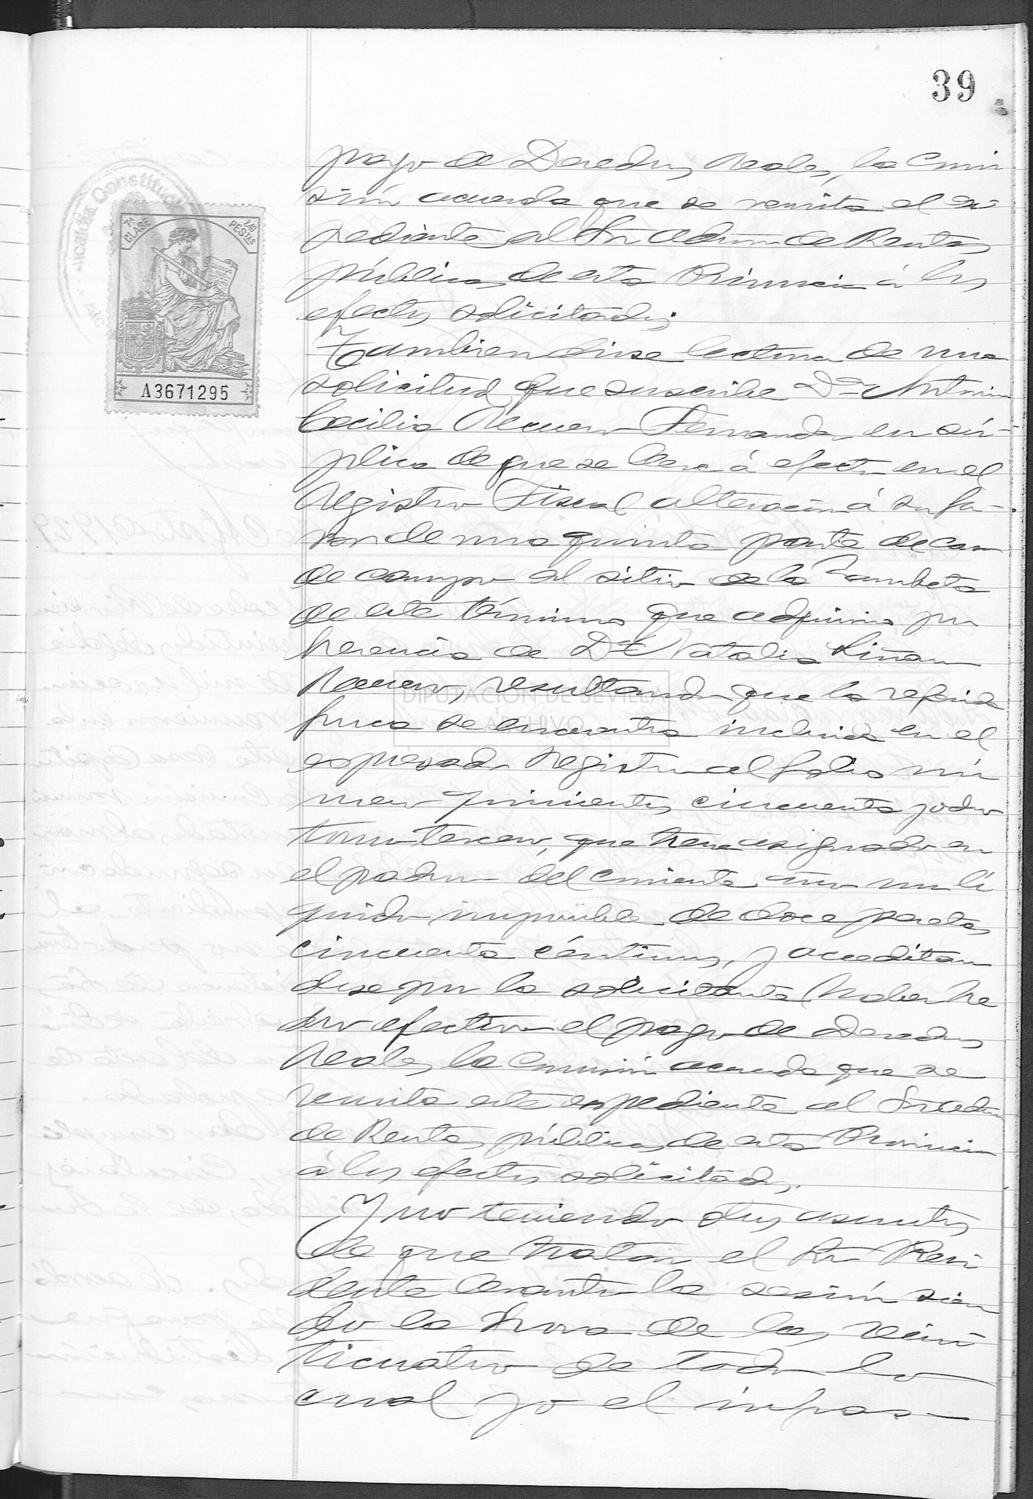 39
pago de Derechos Reales, la Comi
sión acuerda que se remita el ex-
pediente al Sr. Admon de Rentas
públicas de esta Provincia á los
efectos solicitados.
Tambien dióse lectura de una
solicitud que suscribe Dª Antonia
Cecilia Recuero Fernandez en sú-
plica de que se lleve á efecto en el
Registro Fiscal alteración á su fa-
vor de una quinta parte de casa
de campo al sitio de la
de este término que adquirio por
herencia de Dª Natalia Liñan
Recuero, resultando que la referida
finca se encuentra incluida en el
expresado Registro al folio nú
mero quinientos cincuenta y ocho
tomo tercero, que tiene asignado en
el padron del corriente año un lí
quido imponible de doce pesetas
cincuenta céntimos, y acreditan
dose por la solicitante haber he
cho efectivo el pago de Derechos
Reales, la Comisión acuerda que se
remita este expediente al Sr.
de Rentas públicas de esta Provincia
a los efectos solicitados.
Y no teniendo otros asuntos
de que tratar el Sr Presi
dente levantó la sesión sien
do la hora de las vein
ticuatro de todo lo
cual yo el infras-
Alcaldía Constitucional
7ª CLASE
PESETAS
A3671295
DIPUTACIÓN DE SEVILLA
ARCHIVO